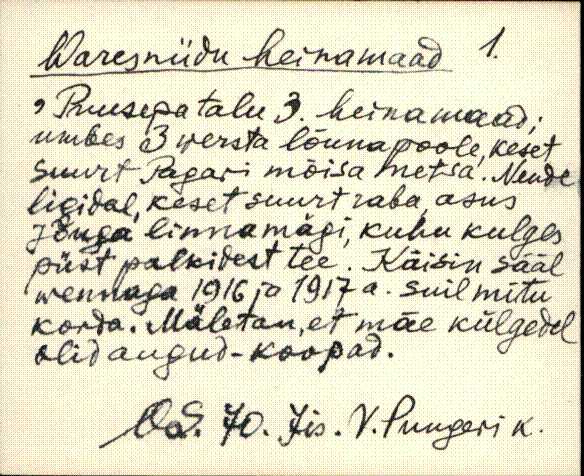 Waresniidu heinamaad 1.
, Puusepa talu 3. heinamaad;
umbes 3 wersta lõunapoole, keset
suurt Pagari mõisa metsa. Nende
ligidal, keset suurt raba, asus
Jõuga linnamägi, kuhu kulges
püst palkidest tee. Käisin sääl
wennaga 1916 ja 1917 a. suil mitu
korda. Mäletan, et mäe külgedel
olid augud-koopad.
O.S. 70. Jis. V. Pungeri k.